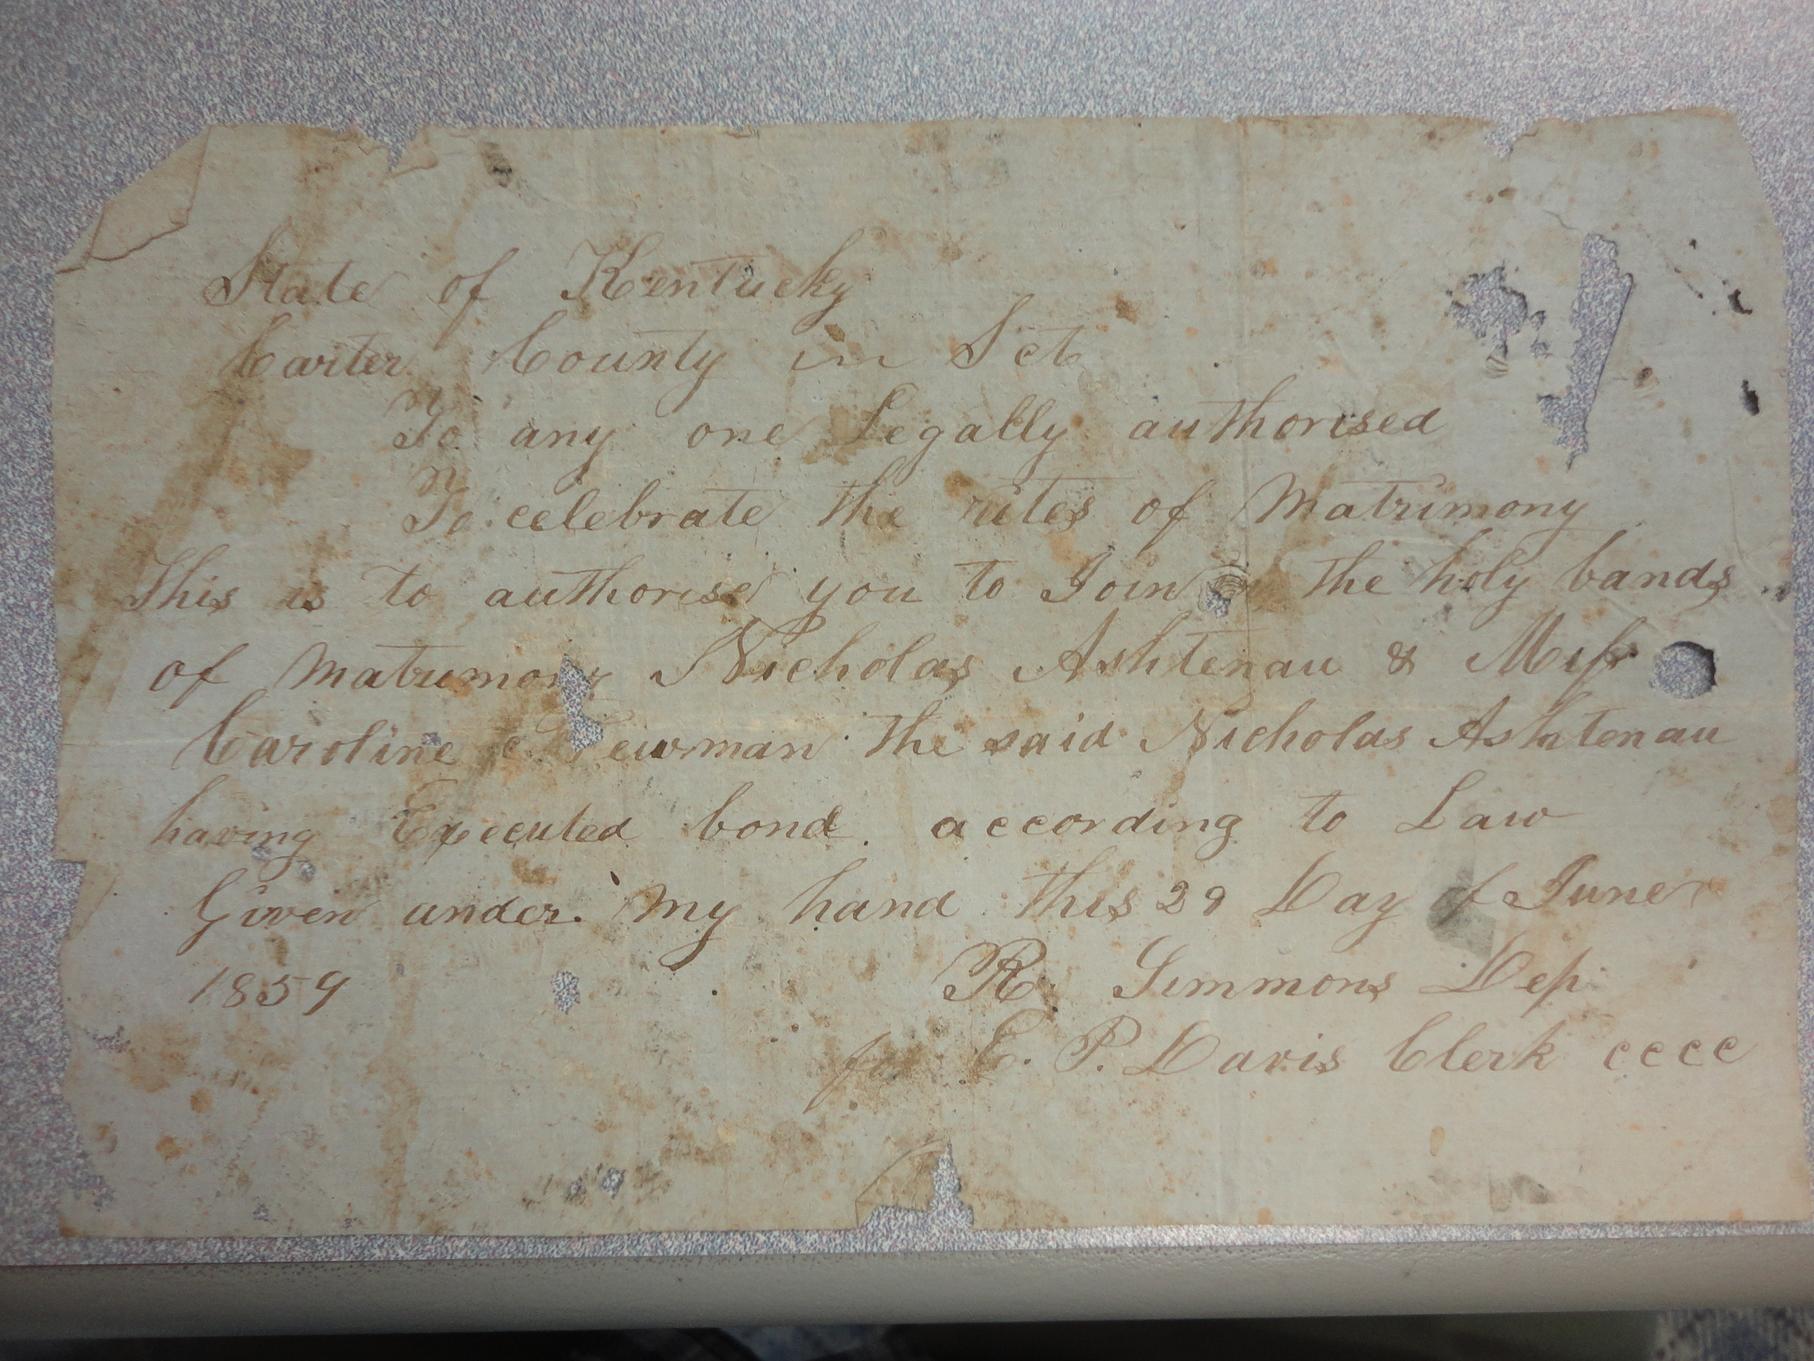 State of Kentucky
Carter County in Sct
To any one Legally authorised
To celebrate the rites of Matrimony
This is to authorise you to Join the holy bands
of Matrimony Nicholas Ashtenau & Miss
Caroline Newman the said Nicholas Ashtenau
having Executed bond according to Law
Given under my hand this 29 Day of June
1859 R. Simmons Dep.
for E. P. Davis Clerk cccc